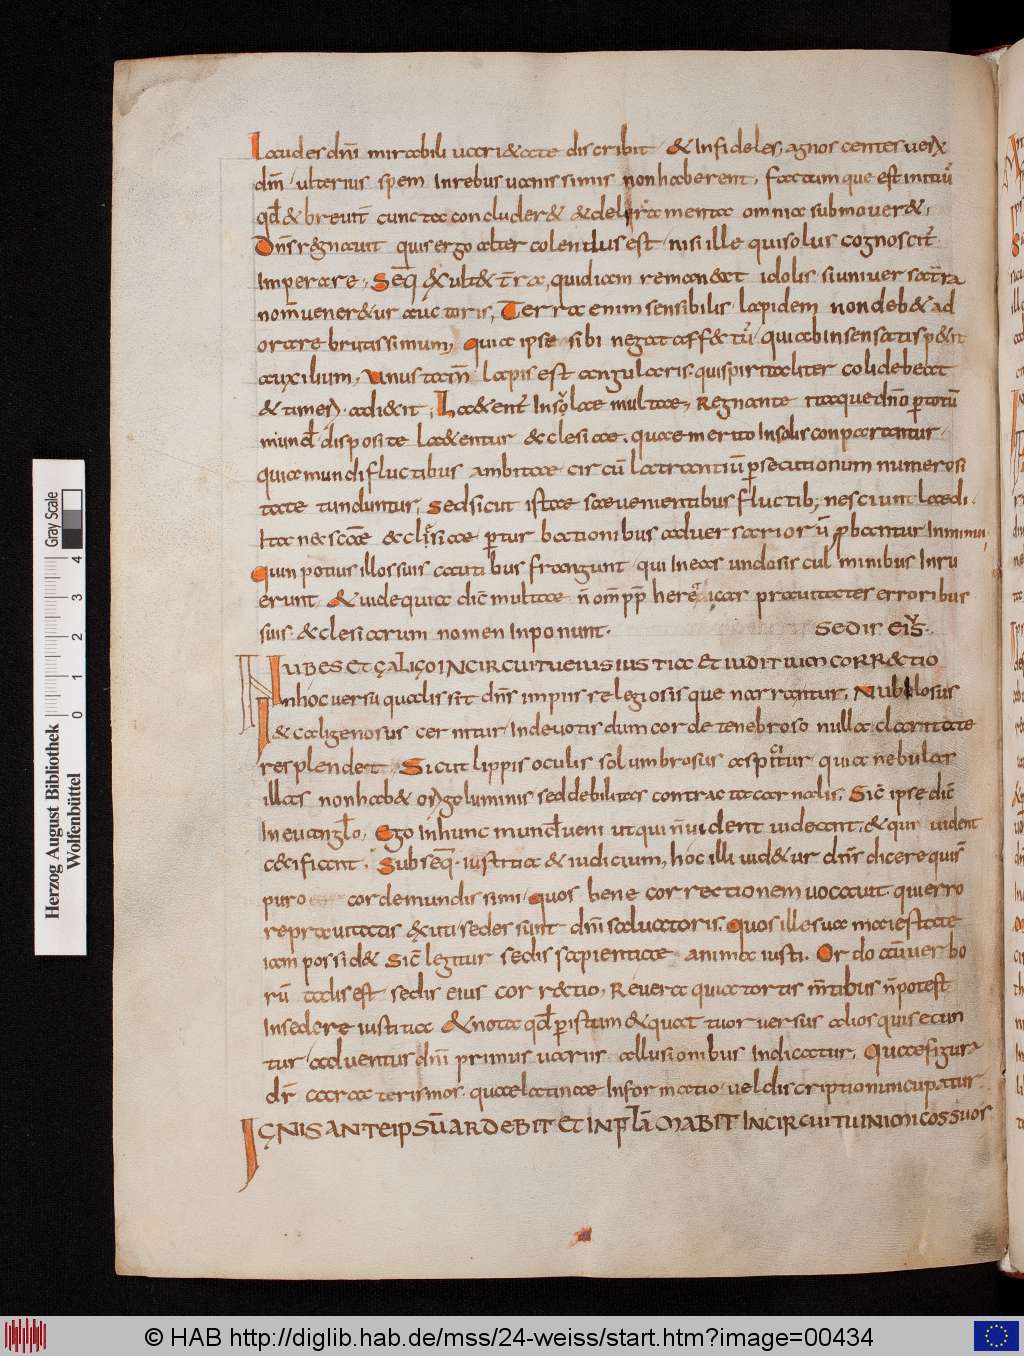 Laudes dn̄i mirabili uari&ate discribit · & Infideles, agnoscentes uerū
dm̄ / ulterius spem Inrebus uanissimis nonhaberent · factum que est initiū
qd̄ & breuit̄ cuncta concluder& &
 menta omnia submouer&;
Dn̄s r&gnauit quis ergo alter colendus est / nisi ille qui solus cognoscit̄
Imperare · Seq̄ exult& t̄ra, quidiam remaneat idolis si uniuersa t̄ra
nom̄ uener&ur auctoris, Terra enim sensibilis lapidem non deb& ad
orare brutissimum, quia ipse sibi negat aff&tū / qui ab insensatis p&it
auxilium, Vnus tam̄ lapis est angularis · qui spiritaliter coli debeat
& timeri · adidit, La&ent̄ Insolae multae, Regnante itaque dn̄o p totū
mund̄ · disposite la&entur &clesiae · quae merito Insolis conparantur ·
quia mundi fluctibus ambitae · circū latrantiū psecutionum numerosi
tate tunduntur, sed sicut istae saeuientibus fluctib; nesciunt laedi ·
Ita nec scāe &clisiae pturbationibus aduersariorū pbantur Inminui,
Quin potius illos suis cautibus frangunt qui In eas undosis culminibus Inru
erunt · & uide quia dic̄ multae n̄ om̄ pp hereticas prauitates erroribus
suis · &clesiarum nomen Inponunt ·
sedis eiꝰ ·
NUBES ET CALIGO IN CIRCUITU EIUS IUSTITIA ET IUDITIUM CORR&CTIO
In hoc uersu qualis sit dn̄s impiis relegiosisque narrantur, Nubilosus
& caligenosus cernitur Indeuotis dum corde tenebroso nulla claritate
resplendet · Sicut lippis oculis sol umbrosus aspicitur quia nebulas
illas non hab& origo luminis sed debilitas contracta carnalis, Sic̄ ipse dic̄
In euanglo, Ego In hunc mund̄ ueni ut qui n̄ uident uideant, & qui uident
c&ificant · Subseq̄ · iustitia & iudicium, hoc illi uid&ur dn̄s dicere quis̄
puro corde mundissimi · quos bene correctionem uocauit qui erro
re prauitatis exuti / sedes sunt dn̄i saluatoris, Quos ille sua maiestate
iam possid& Sic̄ legitur sedis sapientiae anima iusti · Ordo autē uerbo
rū talis est sedis eius corr&ctio, Reuera quia tortis m̄tibus n̄ potest
Insedere iustitia & nota qd̄ p istum & quattuor uersus alios qui secun
tur / aduentus dn̄i primus uariis allusionibus Indicatur, Quae figura
dr̄ caracterismos · quae latinae Informatio uel discriptio nuncupatur ·
IGNIS ANTE IPSŪ ARDEBIT ET INFLĀMABIT IN CIRCUITU INIMICOS SUOS
Herzog August Bibliothek
Wolfenbüttel
Gray Scale
0 1 2 3 4
© HAB http://diglib.hab.de/mss/24-weiss/start.htm?image=00434